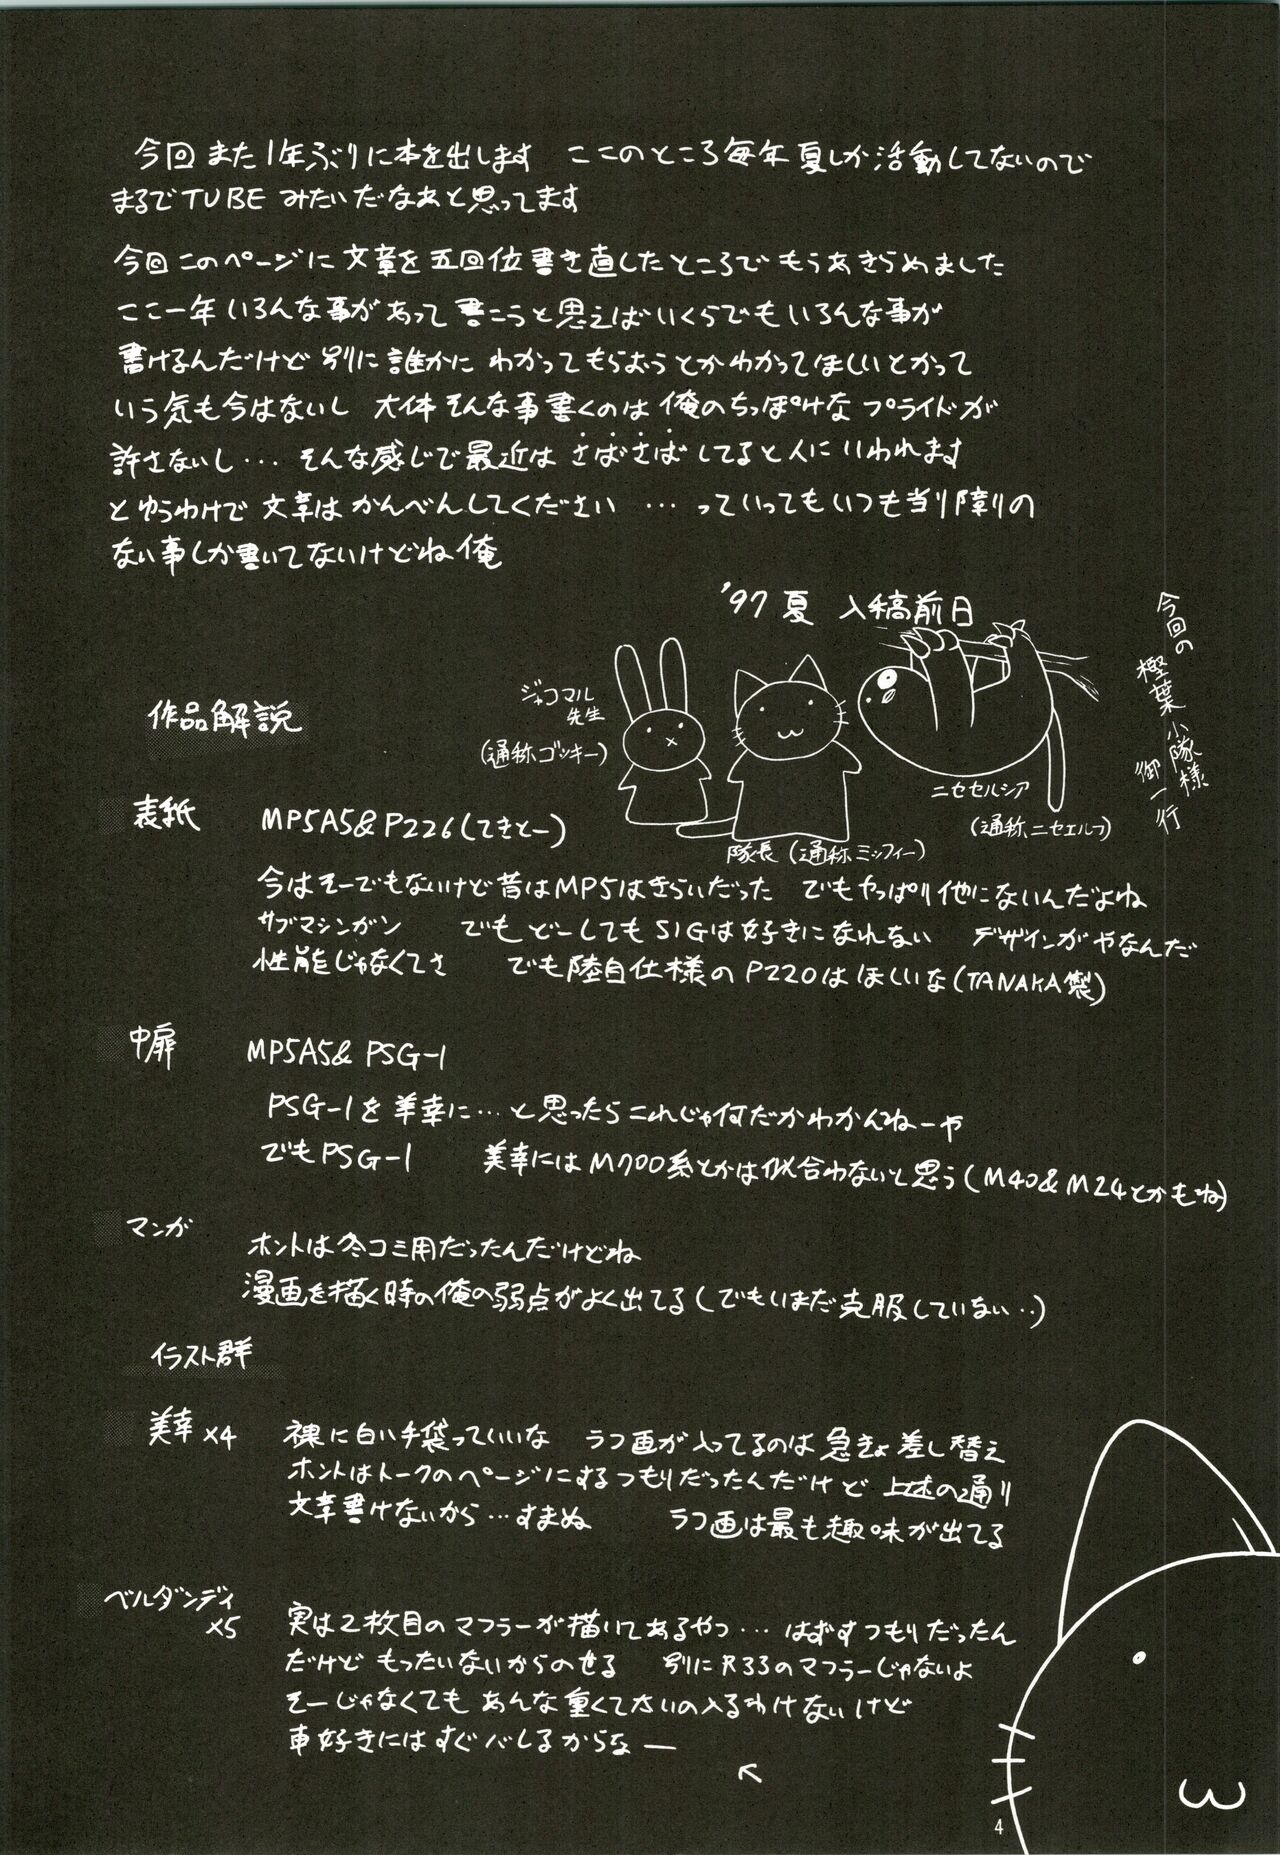 今回また1年ぶりに本を出します ここのところ毎年夏しか活動してないので
まるでTUBEみたいだなあと思ってます
今回このページに文章を五回位書き直したところでもうあきらめました
ここ一年いろんな事があって書こうと思えばいくらでもいろんな事が
書けるんだけど別に誰かにわかってもらおうとかわかってほしいとかって
いう気も今はないし 大体そんな事書くのは俺のちっぽけなプライドが
許さないし… そんな感じで最近はさばさばしてると人にいわれます
とゆうわけで文章はかんべんしてください …っていってもいつも当り障りの
ない事しか書いてないけどね俺
'97夏 入稿前日
今回の
樫葉小隊様
御一行
ジャコマル
先生
(通称ゴッキー)
隊長(通称ミッフィー)
ニセセルシア
(通称ニセエルフ)
作品解説
表紙 MP5A5&P226(てきとー)
今はそーでもないけど昔はMP5はきらいだった でもやっぱり他にないんだよね
サブマシンガン でもどーしてもSIGは好きになれない デザインがやなんだ
性能じゃなくてさ でも陸自仕様のP220はほしいな(TANAKA製)
中扉 MP5A5& PSG-1
PSG-1を美幸に…と思ったらこれじゃ何だかわかんねーや
でもPSG-1 美幸にはM700系とかは似合わないと思う(M40&M24とかもね)
マンガ ホントは冬コミ用だったんだけどね
漫画を描く時の俺の弱点がよく出てる(でもいまだ克服していない‥)
イラスト群
美幸×4 裸に白い手袋っていいな ラフ画が入ってるのは急きょ差し替え
ホントはトークのページにするつもりだったんだけど 上述の通り
文章書けないから…すまぬ ラフ画は最も趣味が出てる
ベルダンディ
×5 実は2枚目のマフラーが描いてあるやつ… はずすつもりだったん
だけど もったいないからのせる 別にR33のマフラーじゃないよ
そーじゃなくても あんな重くてさいの入るわけないけど
車好きにはすぐバレるからなー
4